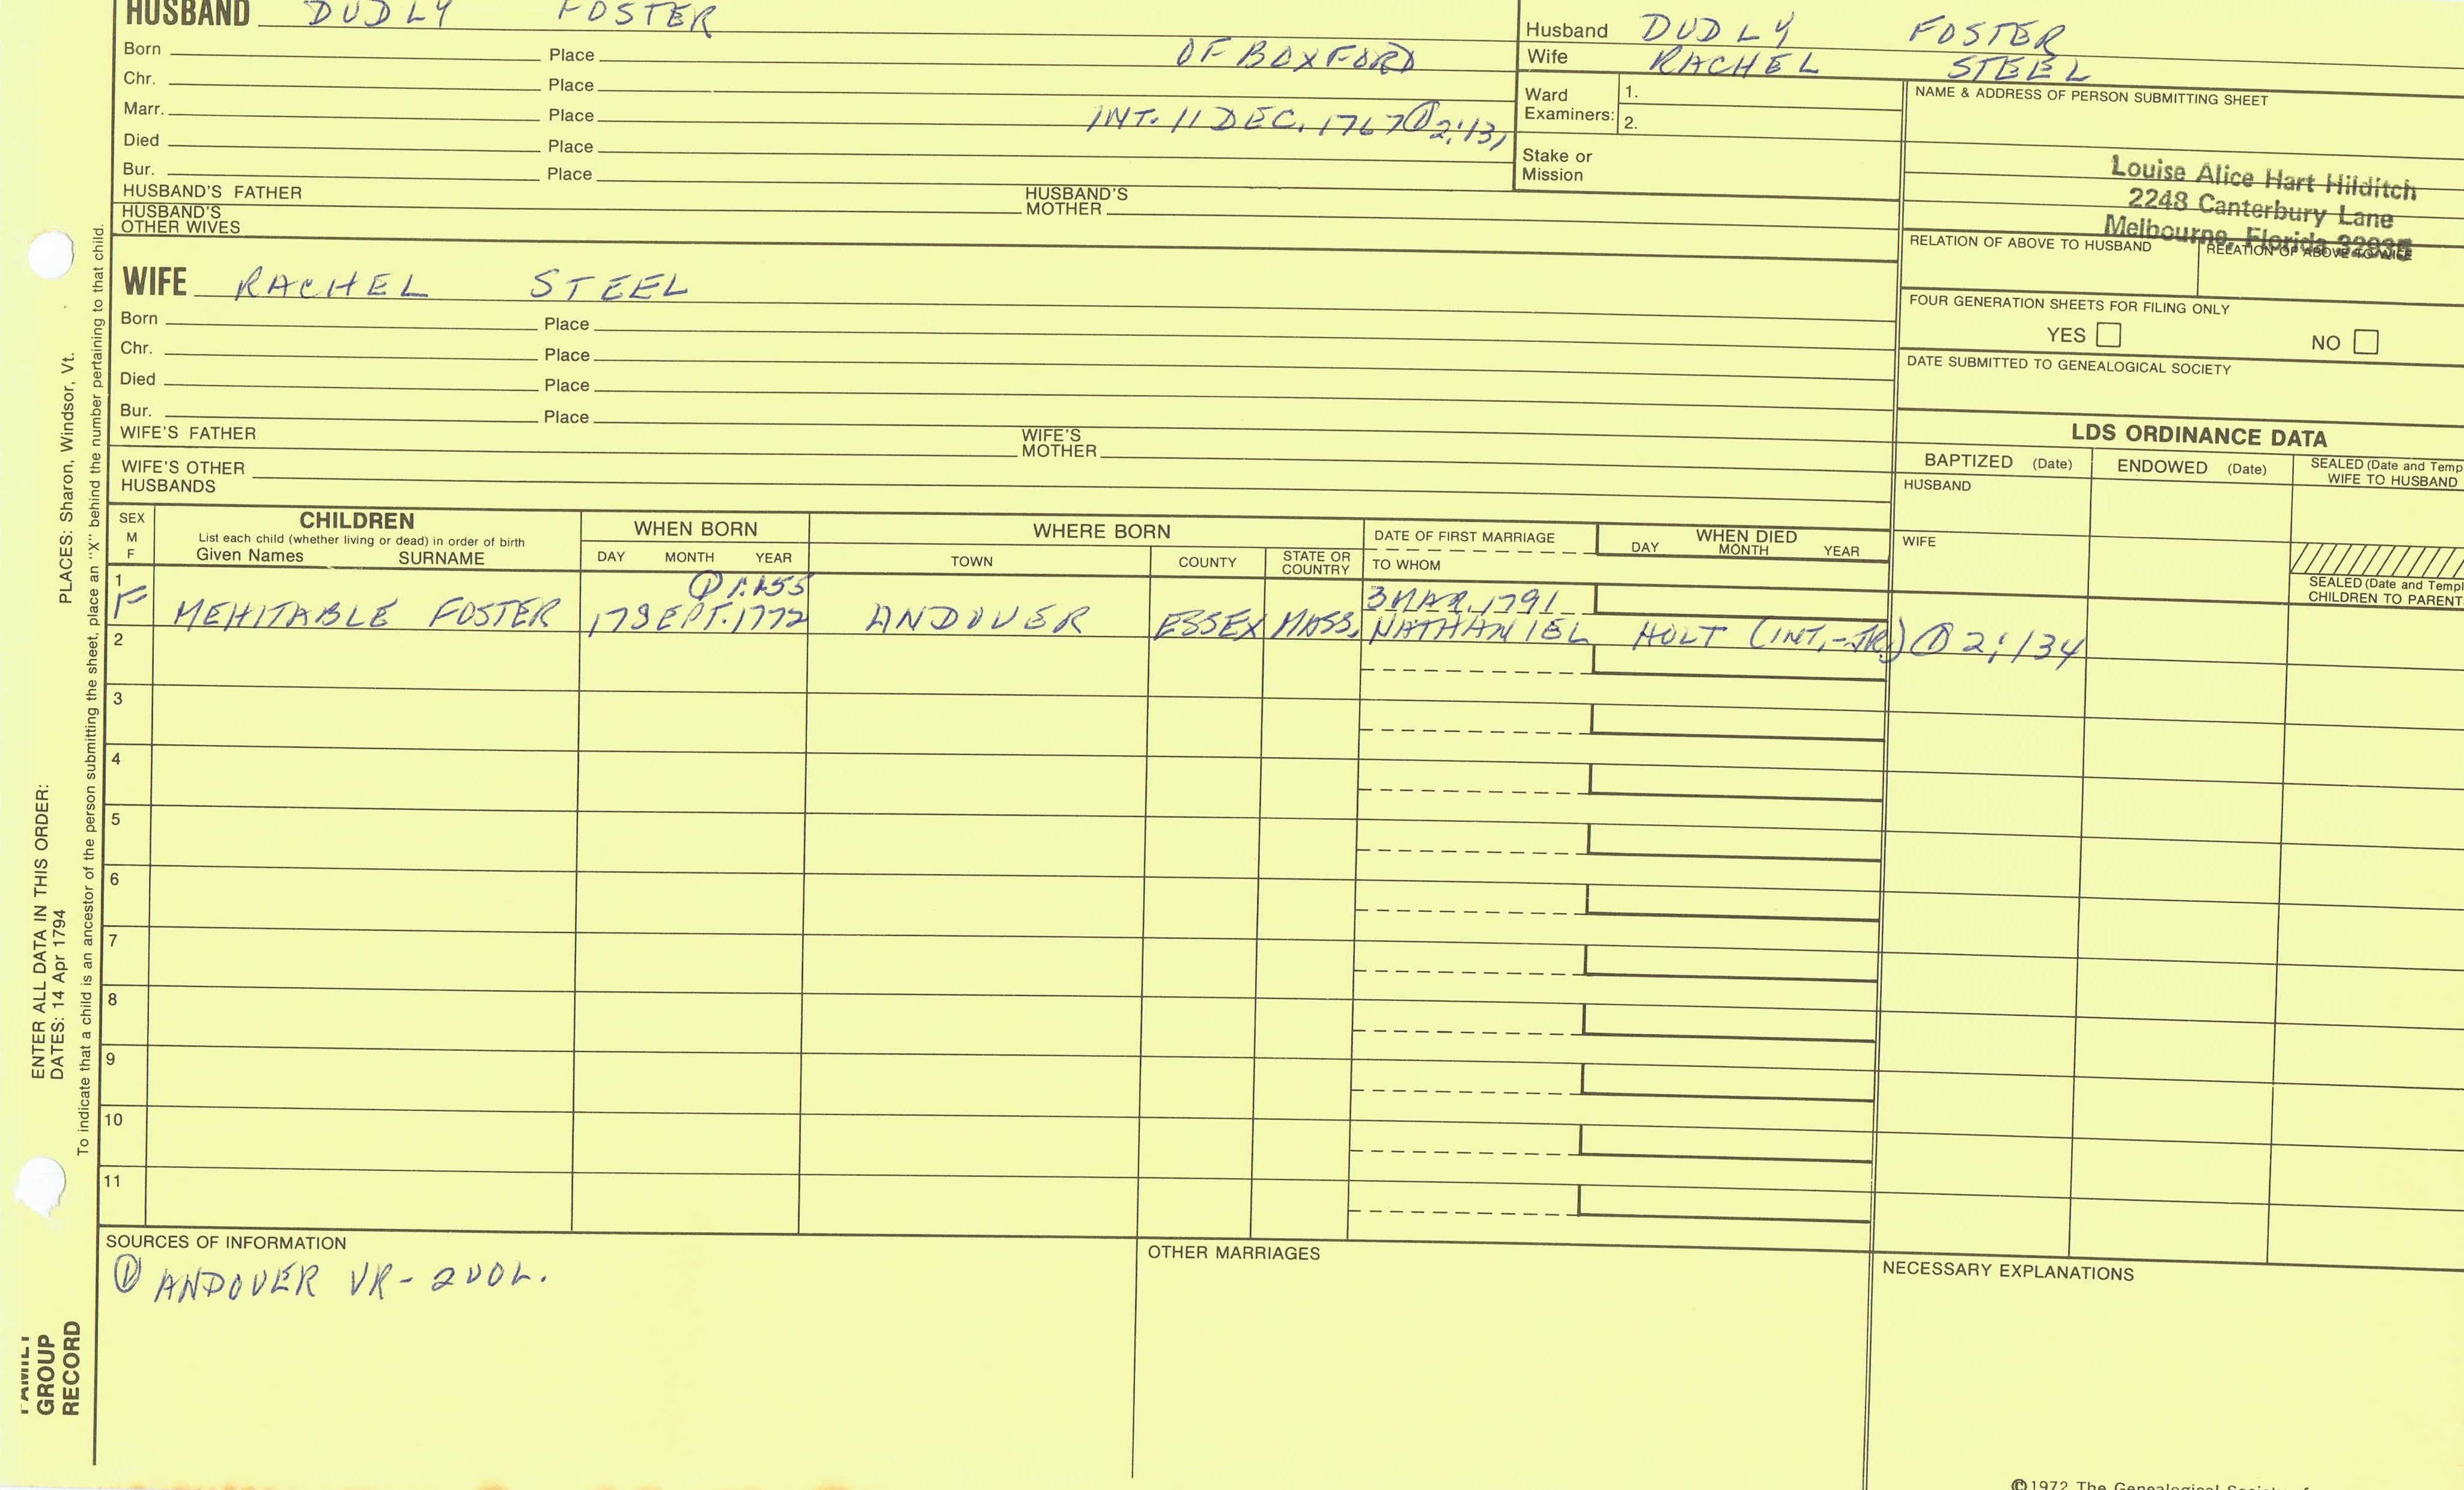 HUSBAND DUDLY FOSTER
Born Place OF BOXFORD
Chr. Place
Marr. Place INT. 11 DEC. 1767 ① 2:131
Died Place
Bur. Place
HUSBAND'S FATHER HUSBAND'S MOTHER
HUSBAND'S OTHER WIVES
WIFE RACHEL STEEL
Born Place
Chr. Place
Died Place
Bur. Place
WIFE'S FATHER WIFE'S MOTHER
WIFE'S OTHER HUSBANDS
Husband DUDLY FOSTER
Wife RACHEL STEEL
Ward Examiners: 1.
2.
Stake or Mission
NAME & ADDRESS OF PERSON SUBMITTING SHEET
Louise Alice Hart Hilditch
2248 Canterbury Lane
Melbourne, Florida 32935
RELATION OF ABOVE TO HUSBAND RELATION OF ABOVE TO WIFE
FOUR GENERATION SHEETS FOR FILING ONLY
YES NO
DATE SUBMITTED TO GENEALOGICAL SOCIETY
LDS ORDINANCE DATA
BAPTIZED (Date) ENDOWED (Date) SEALED (Date and Temp
WIFE TO HUSBAND
HUSBAND
WIFE
SEALED (Date and Templ
CHILDREN TO PARENT
SEX M F
CHILDREN
List each child (whether living or dead) in order of birth
Given Names SURNAME
WHEN BORN
DAY MONTH YEAR
WHERE BORN
TOWN COUNTY STATE OR COUNTRY
DATE OF FIRST MARRIAGE
TO WHOM
WHEN DIED
DAY MONTH YEAR
1 ① 1:155 3 MAR. 1791
F MEHITABLE FOSTER 17 SEPT. 1772 ANDOVER ESSEX MASS. NATHANIEL HOLT (INT.-JR.) ① 2:134
2
3
4
5
6
7
8
9
10
11
SOURCES OF INFORMATION
① ANDOVER VR - 2 VOL.
OTHER MARRIAGES
NECESSARY EXPLANATIONS
©1972 The Genealogical Society of
ENTER ALL DATA IN THIS ORDER:
DATES: 14 Apr 1794 PLACES: Sharon, Windsor, Vt.
To indicate that a child is an ancestor of the person submitting the sheet, place an "X" behind the number pertaining to that child.
FAMILY
GROUP
RECORD